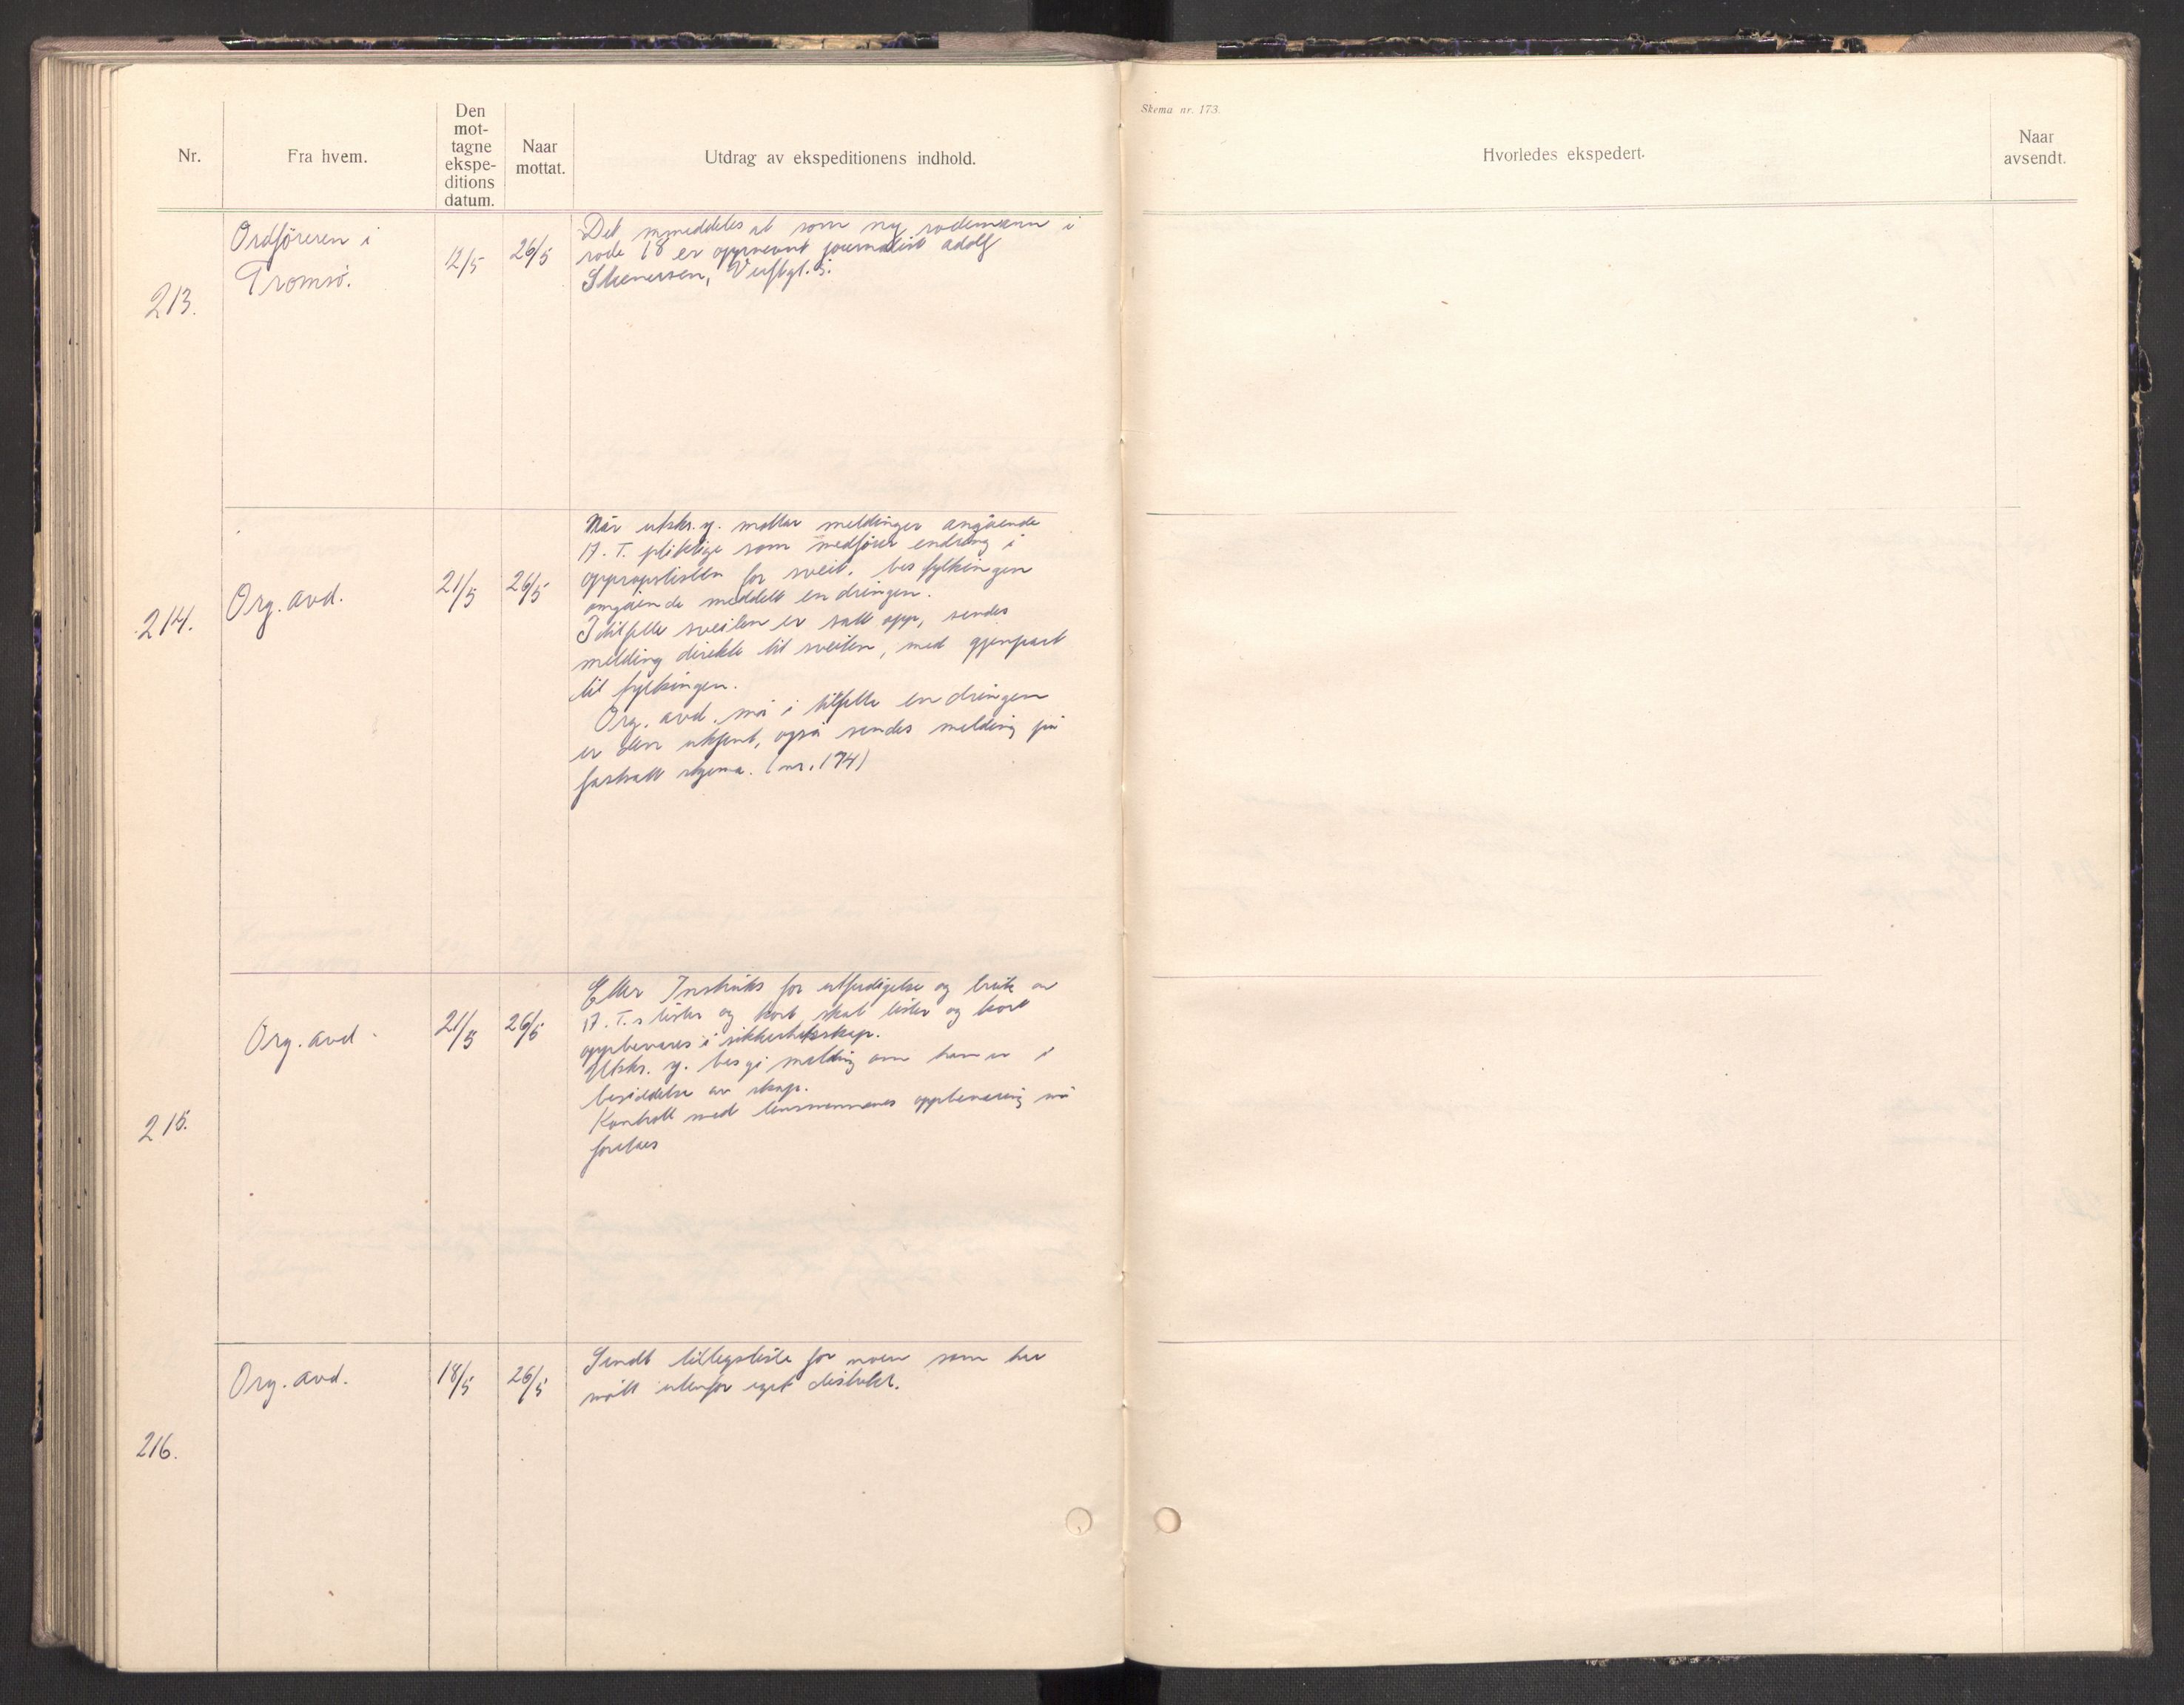 Skema nr. 173.
Nr.
Fra hvem.
Den
mot-
tagne
ekspe-
ditions
datum.
Naar
mottat.
Utdrag av ekspeditionens indhold.
Hvorledes ekspedert.
Naar
avsendt.
213.
Ordföreren i
Tromsö.
12/5
26/5
Det meddeles at som ny rodemann i
rode 18 er oppnevnt journalist Adolf
Steneersen, Verftgt. 3.
214.
Org. avd.
21/5
26/5
Når utskr. y. mottar meldinger angående
A. T. pliktige som medfører endring i
oppropslisten for sveit, bes fylkingen
omgående meddelt endringen.
I tilfelle sveiten er satt opp, sendes
melding direkte til sveiten, med gjenpart
til fylkingen.
Org. avd. må i tilfelle endringen
er blir utført, også sendes melding på
fastsatt skjema. (nr. 174)
215.
Org. avd.
21/5
26/5
Etter Instruks for utferdigelse og bruk av
A. T.s lister og kort skal lister og kort
oppbevares i sikkerhetsskap.
Utskr. y. bes gi melding om han er i
besiddelse av skap.
Kontroll med lensmannenes oppbevaring må
foretaes
216.
Org. avd.
18/5
26/5
Sendt tilleggsliste for noen som har
møtt utenfor eget distrikt.